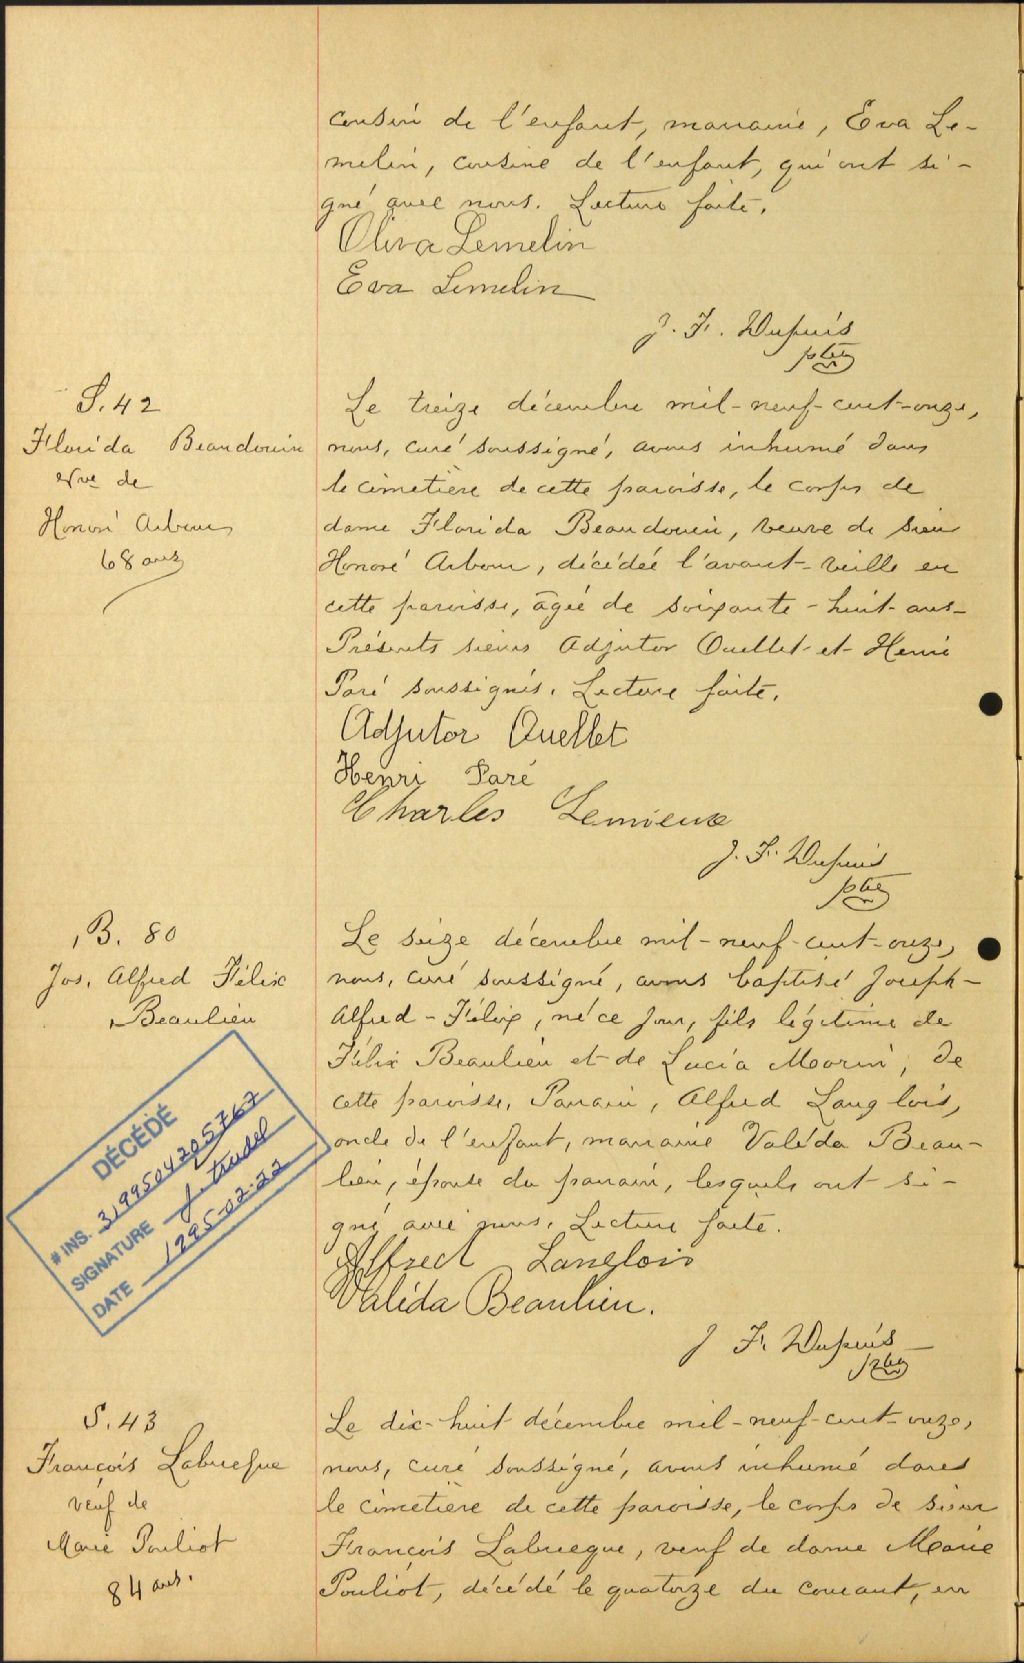 cousin de l'enfant, marraine, Eva Le-
melin, cousine de l'enfant, qui ont si-
gné avec nous. Lecture faite.
Oliva Lemelin
Eva Lemelin
J. F. Dupuis
ptre
S. 42
Florida Beaudouin
Vve de
Honoré Arbour
68 ans
Le treize décembre mil-neuf-cent-onze,
nous, curé soussigné, avons inhumé dans
le cimetière de cette paroisse, le corps de
dame Florida Beaudouin, veuve de sieur
Honoré Arbour, décédée l'avant-veille en
cette paroisse, âgée de soixante-huit-ans-
Présents sieurs Adjutor Ouellet et Henri
Paré soussignés. Lecture faite.
Adjutor Ouellet
Henri Paré
Charles Lemieux
J. F. Dupuis
ptre
B. 80
Jos. Alfred Félix
Beaulieu
Le seize décembre mil-neuf-cent-onze,
nous, curé soussigné, avons baptisé Joseph-
Alfred-Félix, né ce jour, fils légitime de
Félix Beaulieu et de Lucia Morin, de
cette paroisse, Parrain, Alfred Langlois,
oncle de l'enfant, marraine Valéda Beau-
lieu, épouse du parrain, lesquels ont si-
gné avec nous. Lecture faite.
Alfred Langlois
Valéda Beaulieu.
J F. Dupuis
ptre
DÉCÉDÉ
# INS. 3199504205767
SIGNATURE J. Trudel
DATE 1995-02-22
S. 43
François Labrecque
veuf de
Marie Pouliot
84 ans.
Le dix-huit décembre mil-neuf-cent-onze,
nous, curé soussigné, avons inhumé dans
le cimetière de cette paroisse, le corps de sieur
François Labrecque, veuf de dame Marie
Pouliot, décédé le quatorze du courant, en